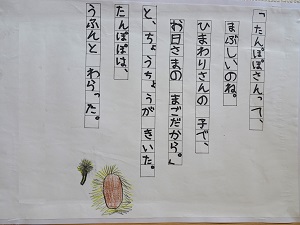 「たんぽぽさんって、
まぶしいのね。
ひまわりさんの 子で、
お日さまの まごだから。」
と、ちょうちょうが きいた。
たんぽぽは、
うふんと わらった。